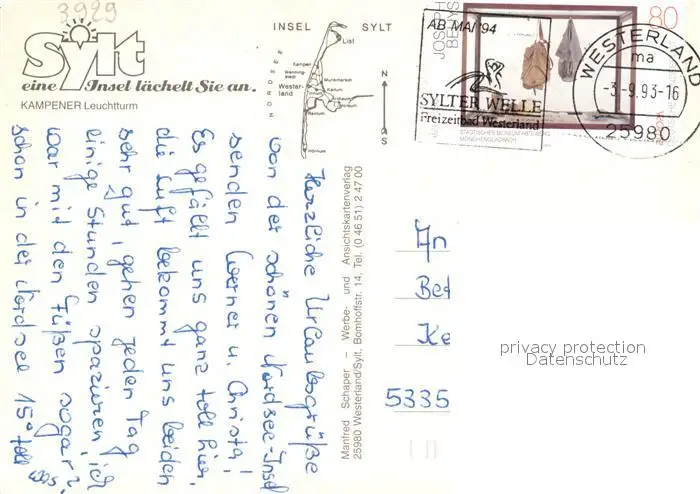 3929
Sylt
eine Insel lächelt Sie an.
KAMPENER Leuchtturm
INSEL SYLT
NORDSEE
List
Kampen
Westerland
Rantum
Hörnum
N
S
AB MAI '94
SYLTER WELLE
Freizeitbad Westerland
JOSEPH BEUYS
80
STÄDTISCHES MUSEUM ABTEIBERG
MÖNCHENGLADBACH
WESTERLAND
ma
-3.-9.93-16
25980
Herzliche Urlaubsgrüße
von der schönen Nordsee-Insel
senden Werner u. Christa!
Es gefällt uns ganz toll hier,
die Luft bekommt uns beiden
sehr gut, gehen jeden Tag
einige Stunden spazieren, ich
war mit den Füßen sogar
schon in der Nordsee 15° toll
Manfred Schaper – Werbe- und Ansichtskartenverlag
25980 Westerland/Sylt, Bomhoffstr. 14, Tel. (0 46 51) 2 47 00
An
Bet
Ke
5335
privacy protection
Datenschutz